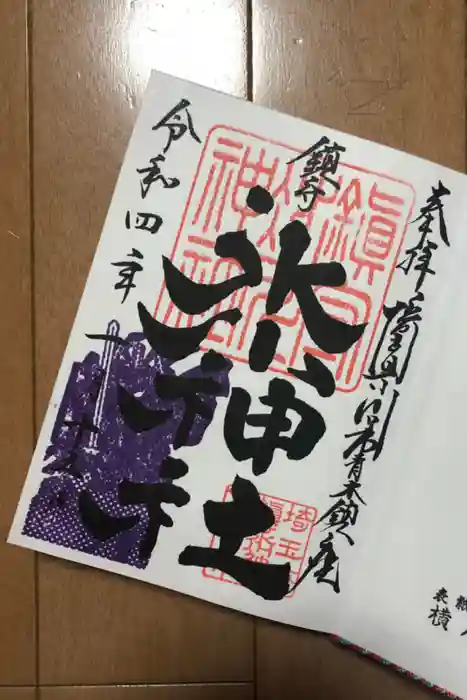 奉拝 埼玉県川口市青木鎮座
鎮守
氷川神社
令和四年
鎮守
氷川
神社
埼玉
横